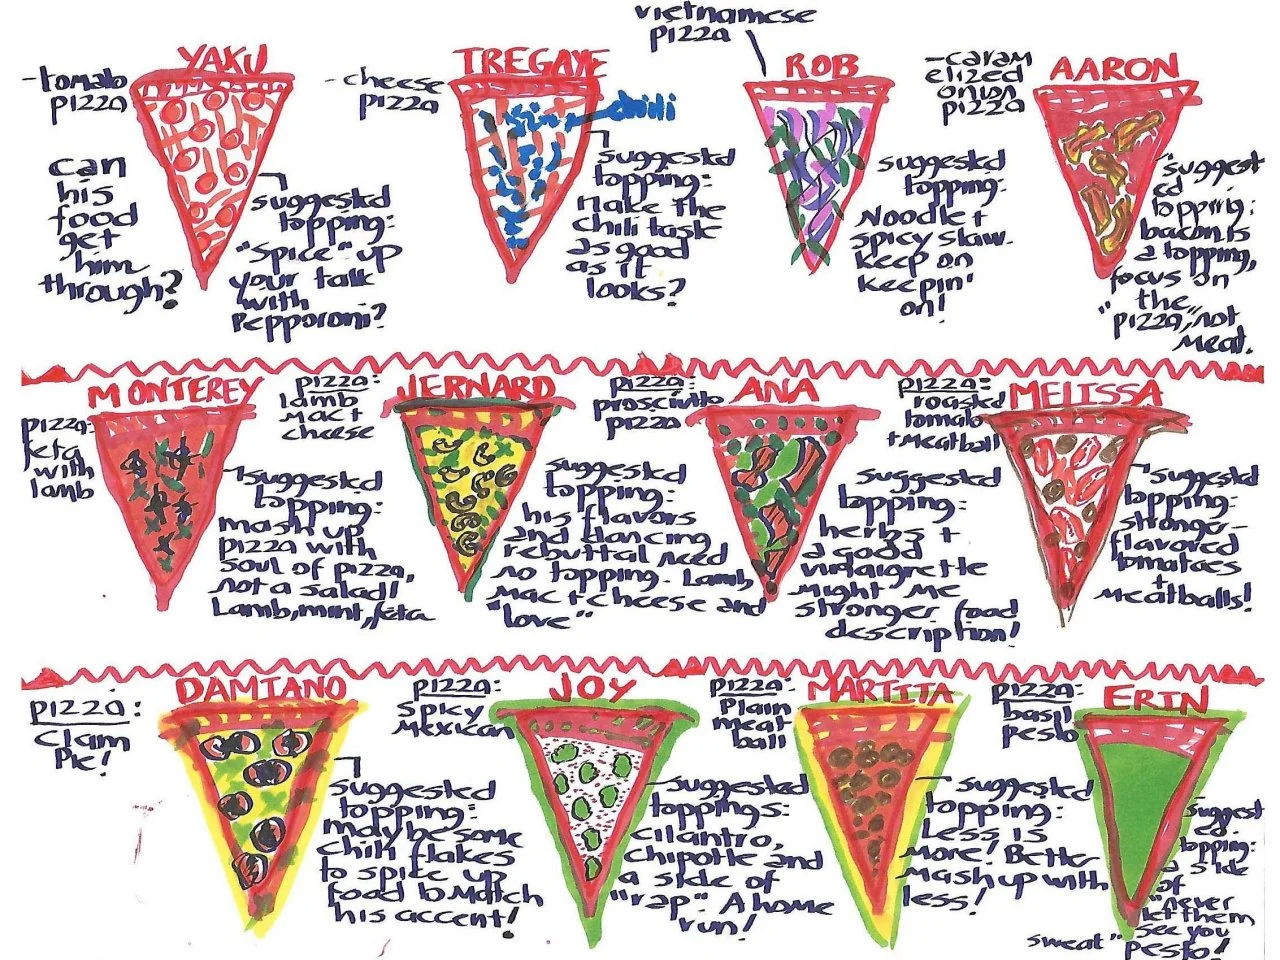 YAKU
-tomato
pizza
can
his
food
get
him
through?
suggested
topping:
"spice" up
your talk
with
Pepporoni?
TREGAYE
-cheese
pizza
chili
suggested
topping:
Make the
chili taste
as good
as it
looks?
vietnamese
pizza
ROB
suggested
topping:
Noodle +
spicy slaw.
keep on
keepin'
on!
AARON
-caram
elized
onion
pizza
"suggest
ed
topping:
bacon is
a topping,
focus on
"the
pizza," not
Meat.
MONTEREY
pizza:
feta
with
lamb
suggested
topping:
mash up
pizza with
soul of pizza,
not a salad!
Lamb, mint, feta
JERNARD
pizza:
lamb
mac +
cheese
suggested
topping:
his flavors
and dancing
rebuttal need
no topping. Lamb,
mac + cheese and
"love"
ANA
pizza:
prosciutto
pizza
suggested
topping:
herbs +
a good
vinaigrette
might me
stronger food
description!
MELISSA
pizza:
roasted
tomato
+ Meatball
suggested
topping:
stronger-
flavored
tomatoes
+
meatballs!
DAMIANO
pizza:
clam
Pie!
suggested
topping:
maybe some
chili flakes
to spice up
food to match
his accent!
JOY
pizza:
spicy
Mexican
suggested
toppings:
cilantro,
chipotle and
a side of
"rap". A home
run!
MARTITA
pizza:
plain
meat
ball
suggested
topping:
Less is
More! Better
mashup with
less!
ERIN
pizza:
basil
pesto
suggest
ed
topping:
a side
of
"never
let them
see you
sweat" pesto!